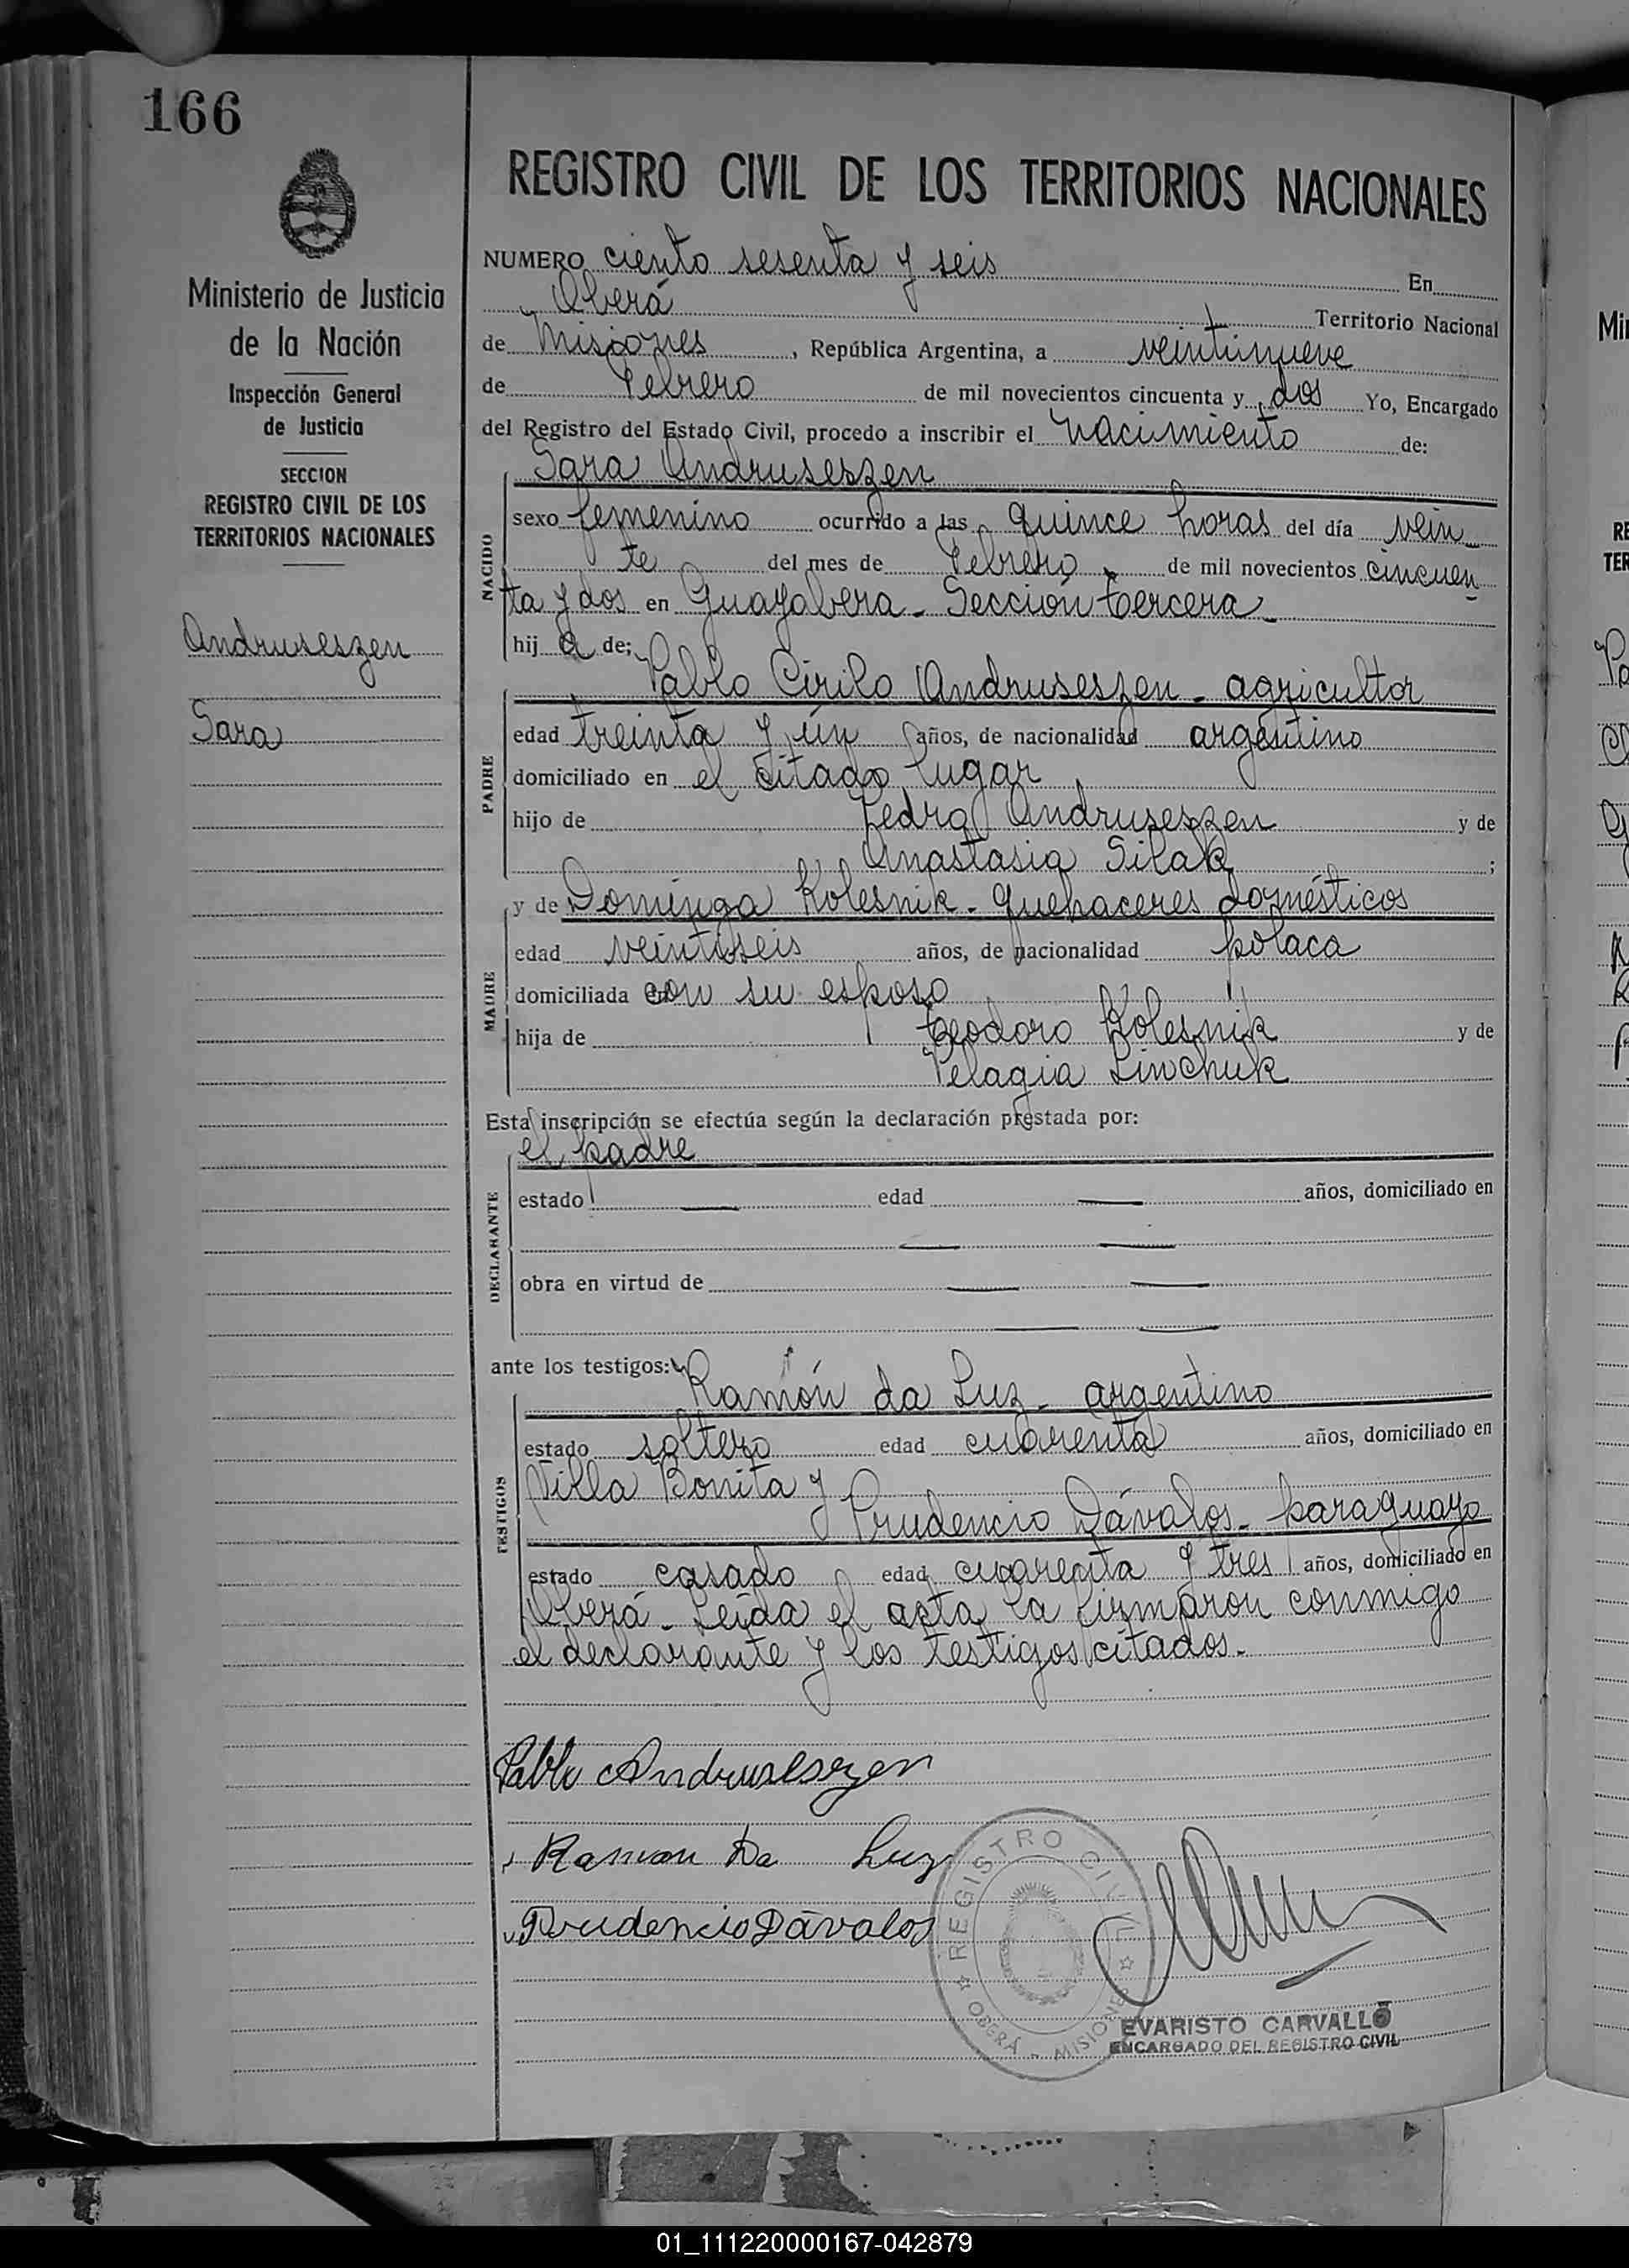 166
REGISTRO CIVIL DE LOS TERRITORIOS NACIONALES
Ministerio de Justicia
de la Nación
Inspección General
de Justicia
SECCION
REGISTRO CIVIL DE LOS
TERRITORIOS NACIONALES
Andruseszen
Sara
NUMERO ciento sesenta y seis En
Oberá Territorio Nacional
de Misiones, República Argentina, a veintinueve
de Febrero de mil novecientos cincuenta y dos Yo, Encargado
del Registro del Estado Civil, procedo a inscribir el nacimiento de:
Sara Andruseszen
NACIDO
sexo femenino ocurrido a las quince horas del día vein
te del mes de Febrero de mil novecientos cincuen
ta y dos en Guayabera - Sección tercera -
hij a de;
Pablo Cirilo Andruseszen - agricultor
PADRE
edad treinta y ún años, de nacionalidad argentino
domiciliado en el citado lugar
hijo de Pedro Andruseszen y de
Anastasia Silak ;
y de Dominga Kolesnik - quehaceres domésticos
MADRE
edad veintiseis años, de nacionalidad polaca
domiciliada con su esposo
hija de Teodoro Kolesnik y de
Pelagia Linchuk
Esta inscripción se efectúa según la declaración prestada por:
el padre
DECLARANTE
estado edad años, domiciliado en
obra en virtud de
ante los testigos:
Ramón da Luz - argentino
TESTIGOS
estado soltero edad cuarenta años, domiciliado en
Villa Bonita y
Prudencio Dávalos - paraguayo
estado casado edad cuarenta y tres años, domiciliado en
Oberá - Leída el acta la firmaron conmigo
el declarante y los testigos citados -
Pablo Andruseszen
Ramon Da Luz
Prudencio Dávalos
REGISTRO CIVIL
OBERÁ - MISIONES
EVARISTO CARVALLO
ENCARGADO DEL REGISTRO CIVIL
01_111220000167-042879